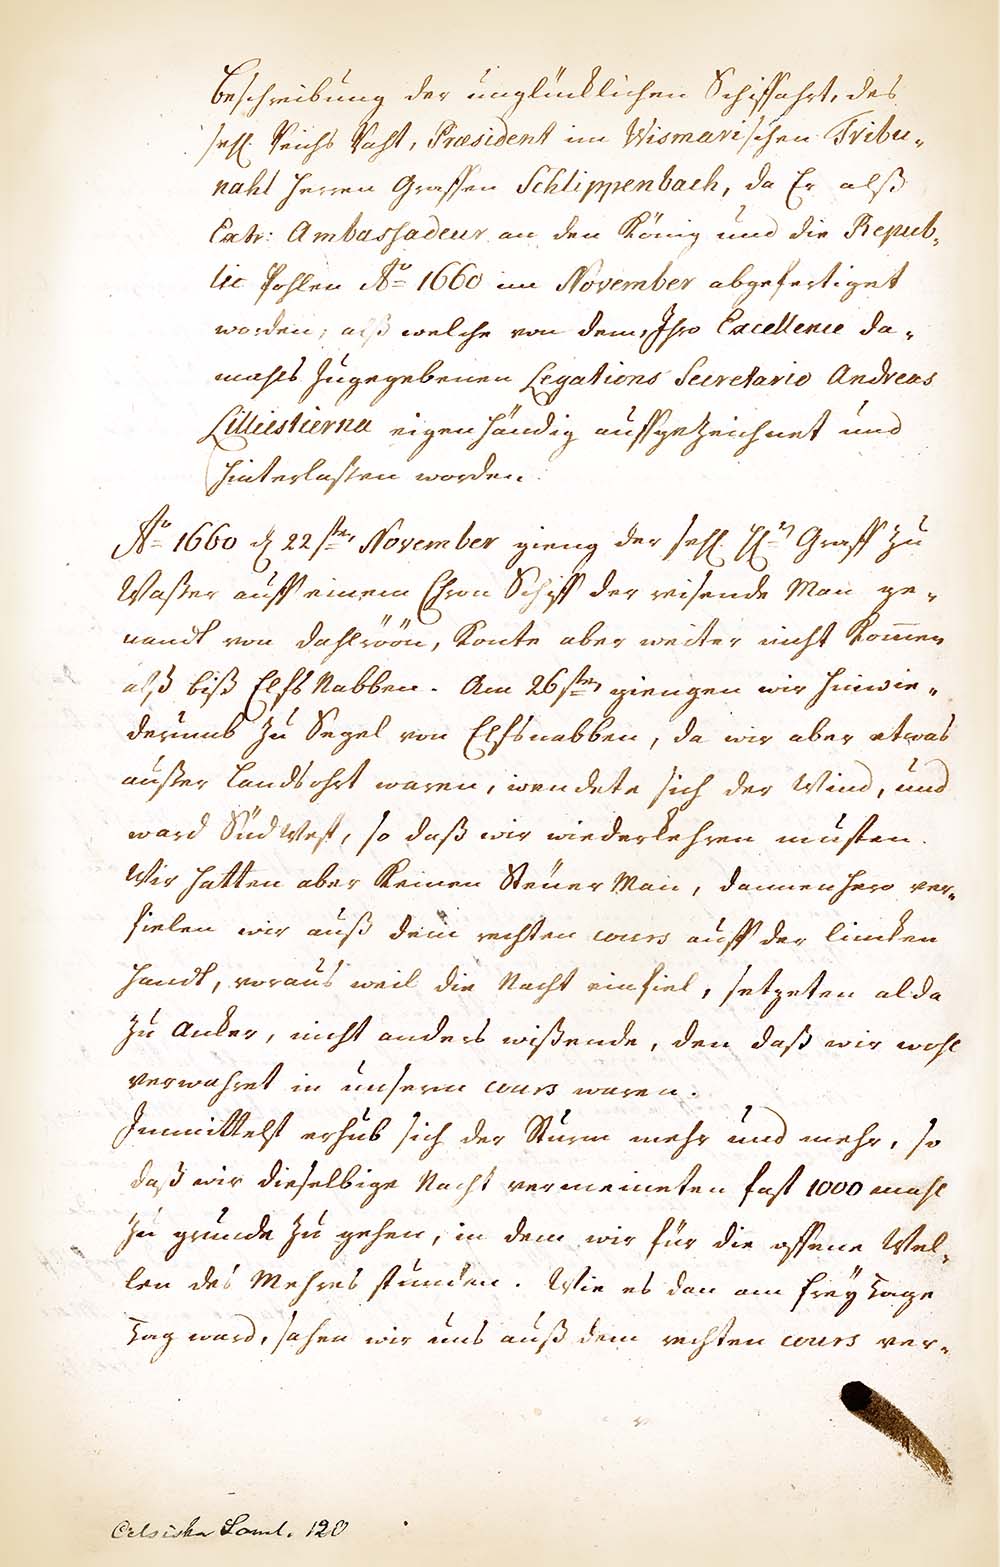 Beschreibung der unglücklichen Schiffahrt, des
sehl. Reichs Raht, Præsident im Wismarischen Tribu-
nahl Herren Graffen Schlippenbach, da Er alß
Extr: Ambassadeur an den König und die Repub-
lic Pohlen Aº 1660 im November abgefertiget
worden, alß welche von dem, Ihro Excellence da-
mahls zugegebenen Legations Secretario Andreas
Lilliestierna eigenhändig auffgezeichnet und
hinterlaßen worden.
Aº 1660 d 22sten November gieng der sehl. Hr. Graff zu
Waßer auff einem Chron Schiff der reisende Man ge-
nandt von Dahlröön, Konte aber weiter nicht Kommen
alß biß Elfs Nabben. Am 26sten giengen wir hinwie-
derumb zu Segel von Elfsnabben, da wir aber etwas
außer Landsohrt waren, wendete sich der Wind, und
ward Süd West, so daß wir wiederkehren musten.
Wir hatten aber Keinen Steuer Man, dannenhero ver-
fielen wir auß dem rechten cours auff der lincken
Handt, voraus weil die Nacht einfiel, setzeten alda
zu Anker, nicht anders wißende, den daß wir wohl
verwahret in unserm cours waren.
Inmittelst erhub sich der Sturm mehr und mehr, so
daß wir dieselbige Nacht vermeineten fast 1000 mahl
zu grunde zu gehen, in dem wir für die offene Wel-
len des Mehres stunden. Wie es dan am freÿ Tage
Tag ward, sahen wir uns auß dem rechten cours ver-
Celsiska Saml. 120